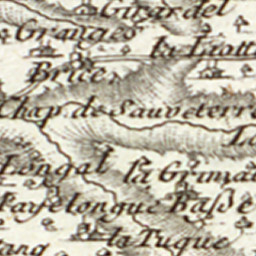 Guirardel
Granges
la Liott
Brice
Chap. de Sauveterre
La
Longal
la Grima
Paye longue Basse
la Tuque
ang